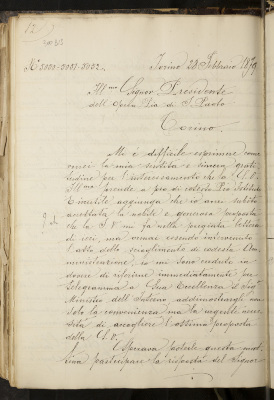 12)
N.° 3000-3001-3002.
Torino 28 Febbraio 1879
Ill.mo Signor Presidente
dell'Opera Pia di S. Paolo
Torino.
Mi è difficile esprimere come
vorrei la mia sentita e sincera grati-
tudine per l'interessamento che la S. V.
Ill.ma prende a pro di codesto Pio Istituto
E inutile aggiunga che io avrei subito
accettata la nobile e generosa proposta
che la S. V. mi fa nella pregiata lettera
di ieri, ma ormai essendo intervenuto
l'atto dello scioglimento di codesta Am-
ministrazione, io mi sono creduto in
dovere di riferirne immediatamente per
telegramma a Sua Eccellenza il Sig.r
Ministro dell'Interno, addimostrando non
solo la convenienza ma la urgente neces-
sità di accogliere l'ottima proposta
della S. V.
Speravo poterle questa mat-
tina partecipare la risposta del Signor